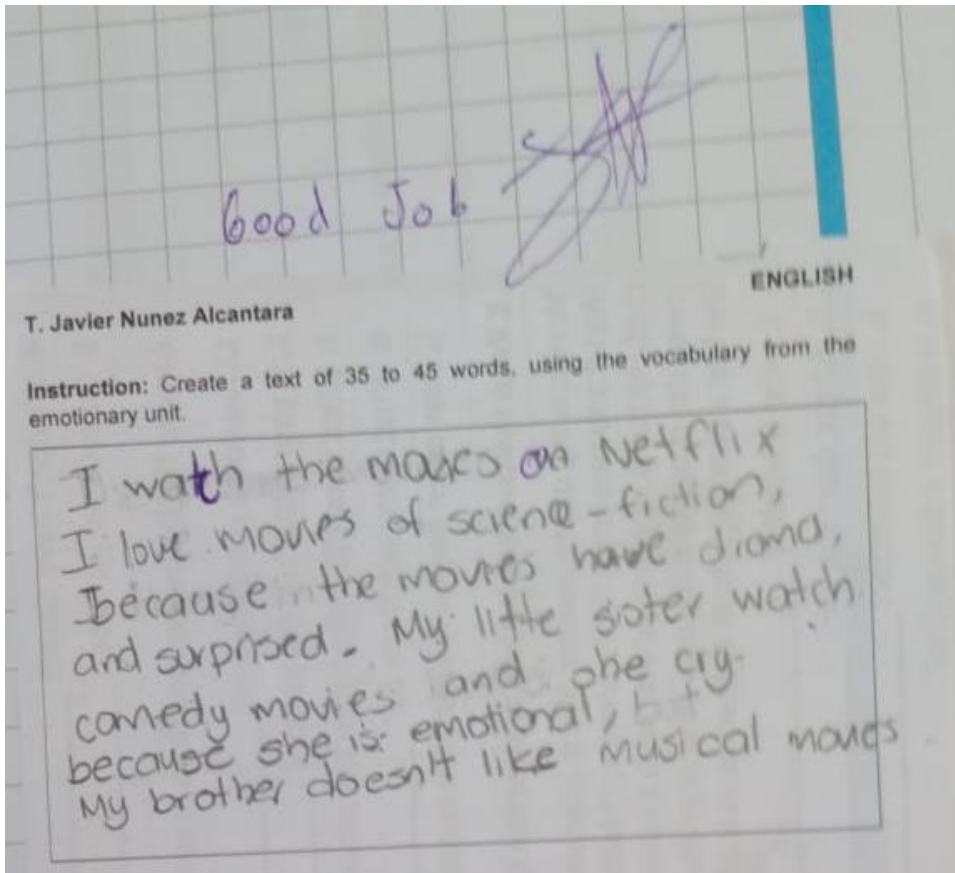 Good Job
ENGLISH
T. Javier Nunez Alcantara
Instruction: Create a text of 35 to 45 words, using the vocabulary from the
emotionary unit.
I watch the movies on Netflix
I love movies of science-fiction,
because the movies have drama,
and surprised. My little sister watch
comedy movies and she cry
because she is emotional,
My brother doesn't like musical movies